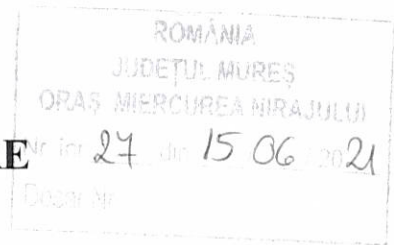 ROMÂNIA
JUDEȚUL MUREȘ
ORAȘ MIERCUREA NIRAJULUI
AE Nr. înr. 27 din 15 06 2021
Dosar Nr.